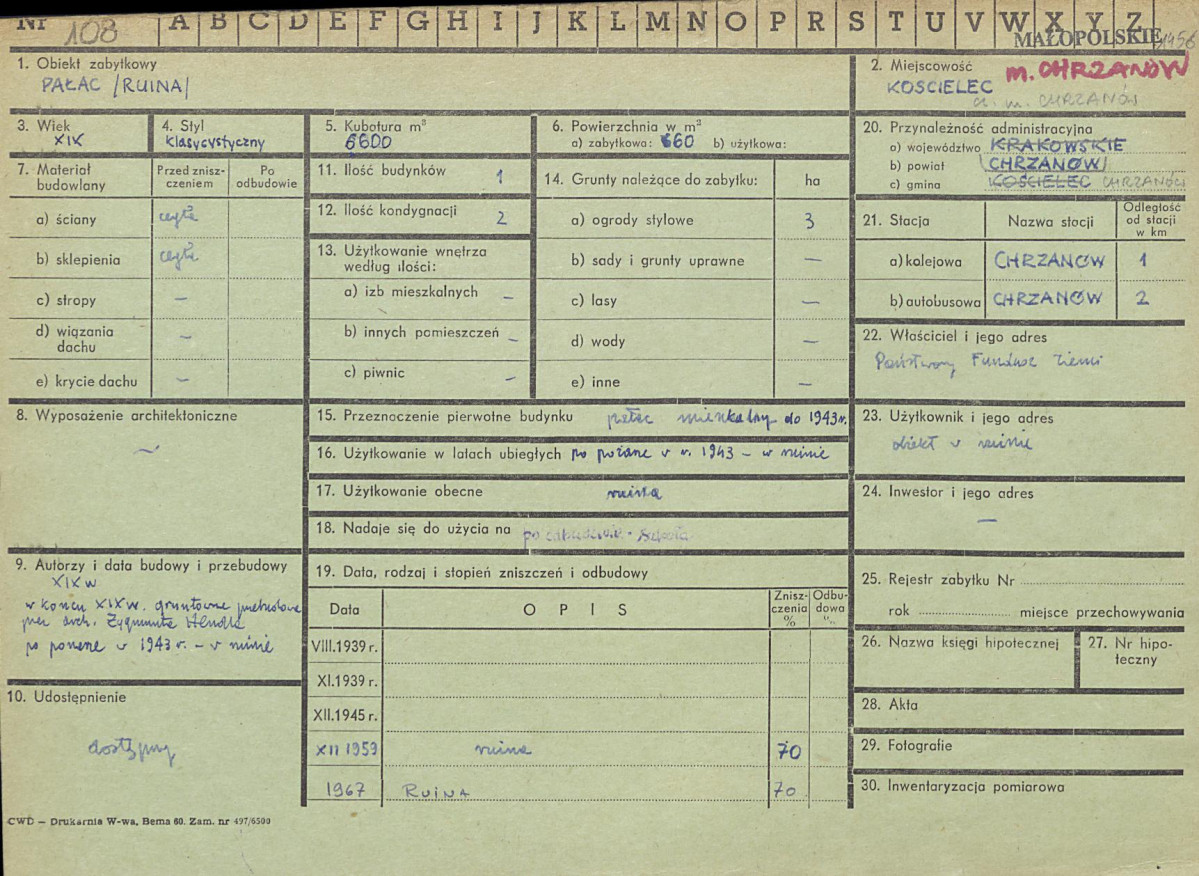 Nr 108 A B C D E F G H I J K L M N O P R S T U V W X Y Z
MAŁOPOLSKIE
1. Obiekt zabytkowy
PAŁAC /RUINA/
2. Miejscowość m. CHRZANÓW
KOSCIELEC
m. CHRZANÓW
3. Wiek
XIX
4. Styl
klasycystyczny
5. Kubatura m³
6600
6. Powierzchnia w m²
a) zabytkowa: 660 b) użytkowa:
7. Materiał budowlany
Przed zniszczeniem
Po odbudowie
a) ściany cegła
b) sklepienia cegła
c) stropy —
d) wiązania dachu —
e) krycie dachu —
8. Wyposażenie architektoniczne
—
9. Autorzy i data budowy i przebudowy
XIX w
w końcu XIX w. gruntownie przebudowa
przez arch. Zygmunta Hendla
po pożarze w 1943 r. – w ruinie
10. Udostępnienie
dostępny
11. Ilość budynków 1
12. Ilość kondygnacji 2
13. Użytkowanie wnętrza według ilości:
a) izb mieszkalnych —
b) innych pomieszczeń —
c) piwnic —
14. Grunty należące do zabytku: ha
a) ogrody stylowe 3
b) sady i grunty uprawne —
c) lasy —
d) wody —
e) inne —
15. Przeznoczenie pierwotne budynku pałac mieszkalny do 1943 r.
16. Użytkowanie w latach ubiegłych po pożarze w r. 1943 – w ruinie
17. Użytkowanie obecne ruina
18. Nadaje się do użycia na po odbudowie - szkoła
19. Data, rodzaj i stopień zniszczeń i odbudowy
Data OPIS Zniszczenia % Odbudowa %
VIII.1939 r.
XI.1939 r.
XII.1945 r.
XII 1959 ruina 70
1967 RUINA 70
20. Przynależność administracyjna
a) województwo KRAKOWSKIE
b) powiat CHRZANÓW
c) gmina KOŚCIELEC CHRZANÓW
21. Stacja Nazwa stacji Odległość od stacji w km
a) kolejowa CHRZANÓW 1
b) autobusowa CHRZANÓW 2
22. Właściciel i jego adres
Państwowy Fundusz Ziemi
23. Użytkownik i jego adres
obiekt w ruinie
24. Inwestor i jego adres
—
25. Rejestr zabytku Nr
rok miejsce przechowywania
26. Nazwa księgi hipotecznej
27. Nr hipoteczny
28. Akta
29. Fotografie
30. Inwentaryzacja pomiarowa
CWD – Drukarnia W-wa, Bema 60. Zam. nr 497/6500